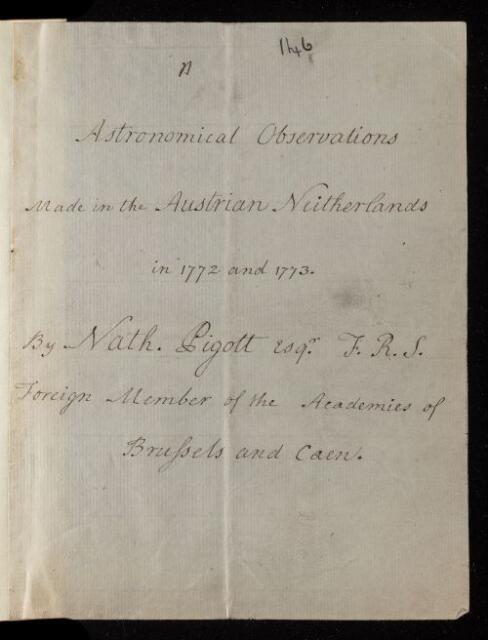 146
n
Astronomical Observations
Made in the Austrian Neitherlands
in 1772 and 1773.
By Nath. Pigott Esqr. F. R. S.
Foreign Member of the Academies of
Bruſsels and Caen.